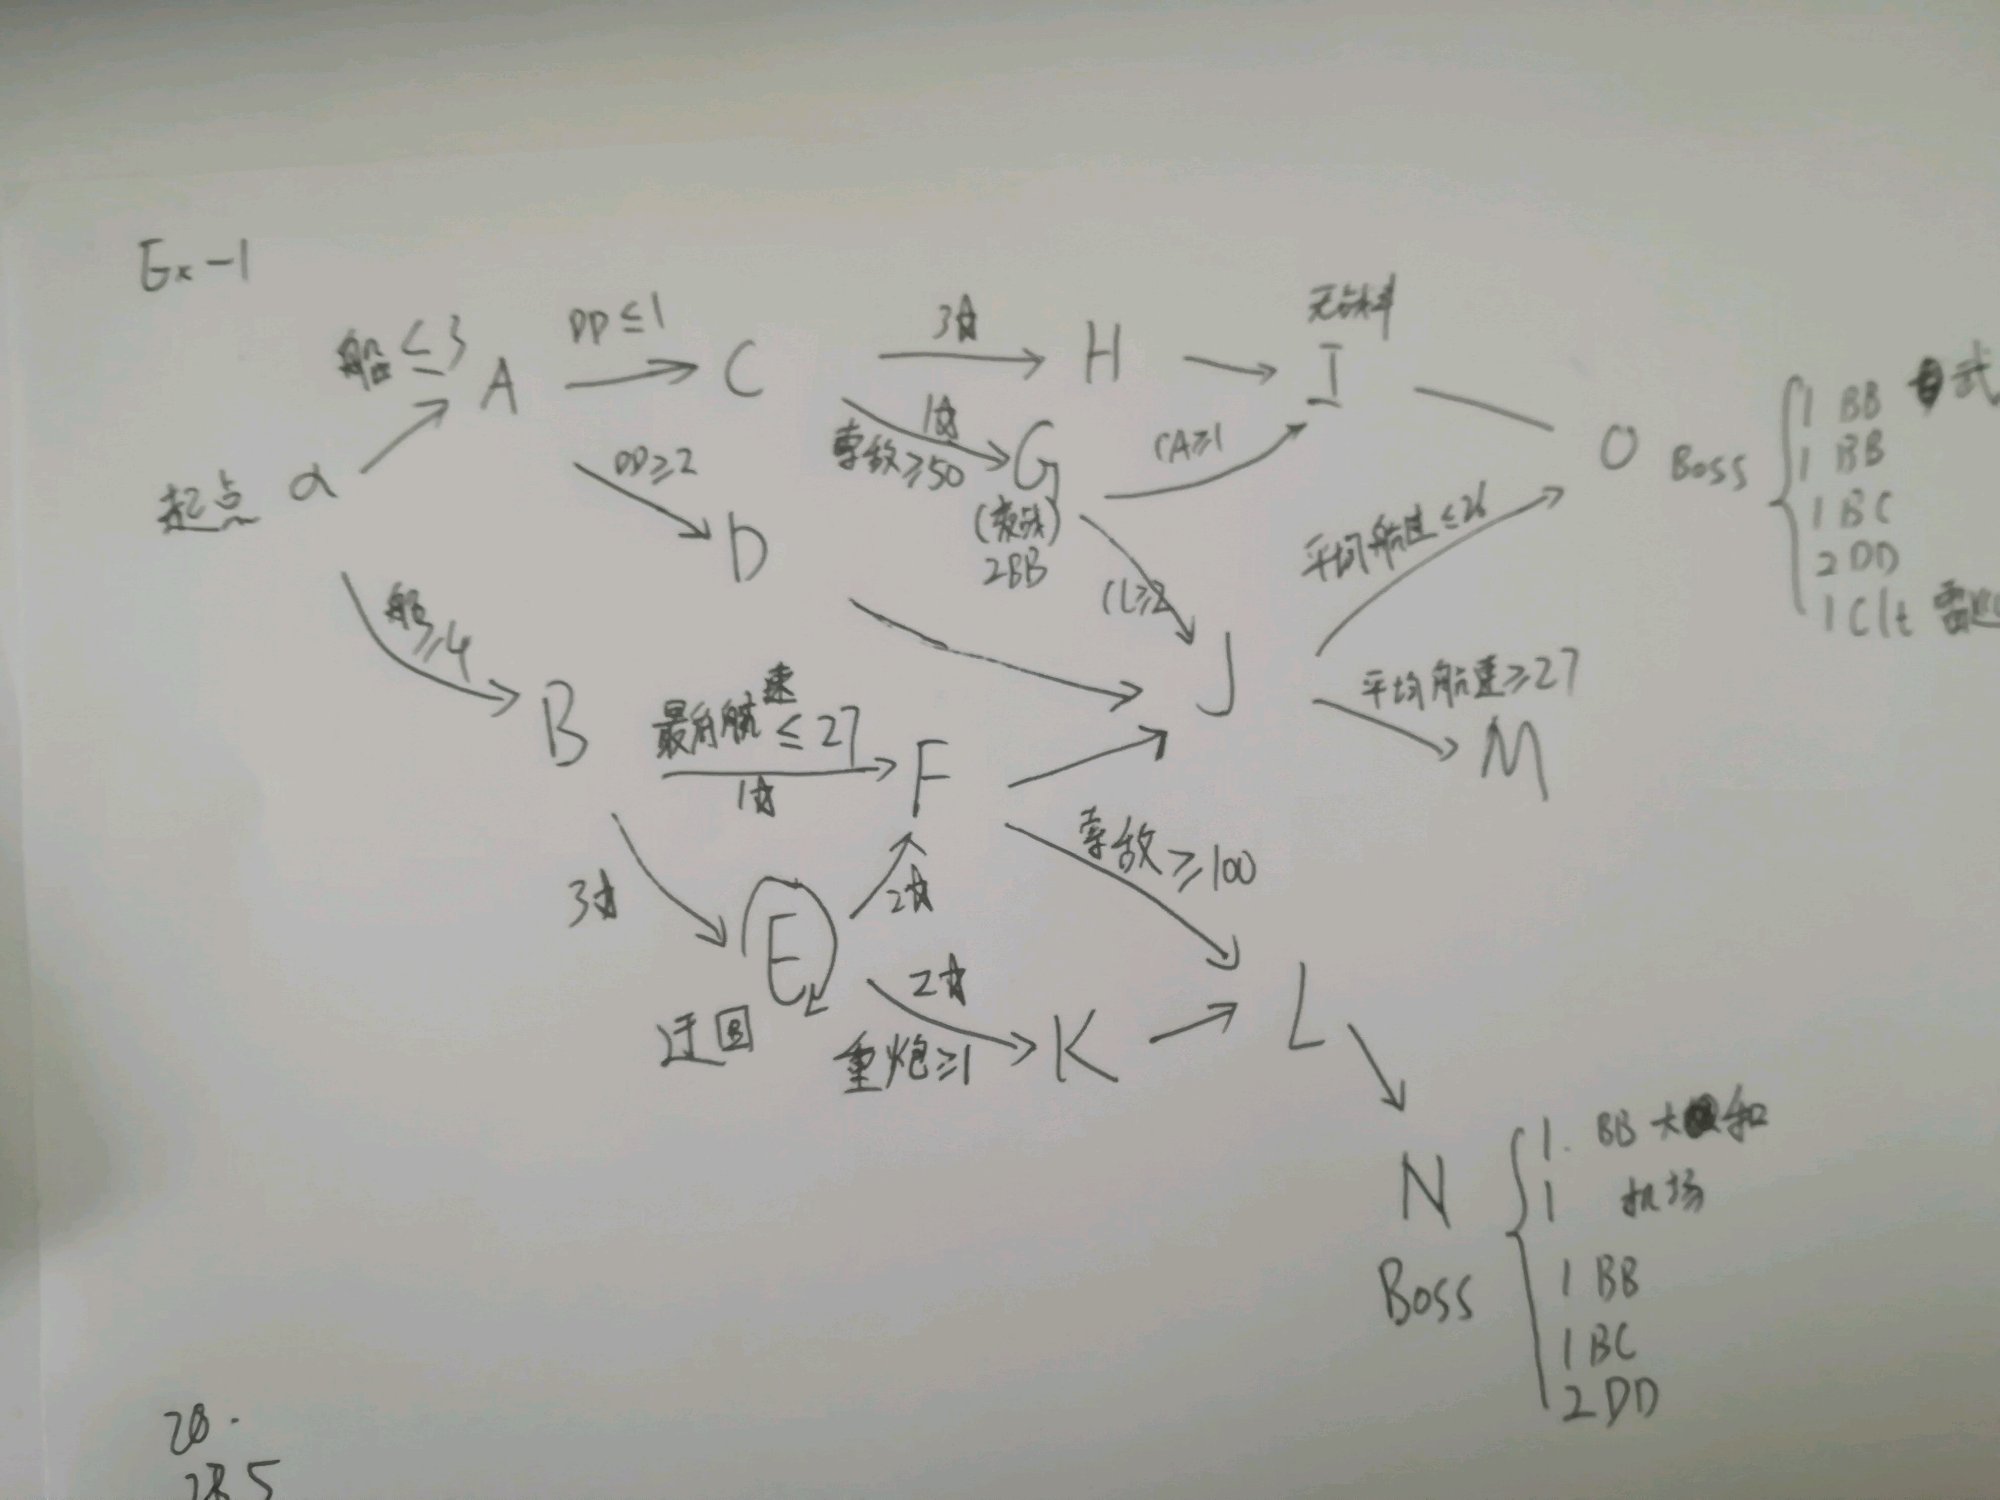 Ex-1
船≤3
A
DD≤1
C
3女
H
无燃料
I
起点
α
DD≥2
D
1女
索敌≥50
G
(夜战)
2BB
CA≥1
CL≥2
O
Boss
1 BB 武
1 BB
1 BC
2 DD
1 Clt 雷巡
船≥4
B
最高航速≤27
1女
F
J
平均航速≤26
平均航速≥27
M
3女
E
迂回
2女
2女
重炮≥1
K
索敌≥100
L
N
Boss
1. BB 大和
1 机场
1 BB
1 BC
2 DD
28.5